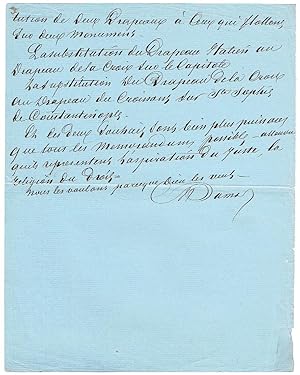 tution de deux Drapeaux à Ceux qui flottent
sur deux Monuments.
La substitution du Drapeau Italien au
Drapeau de la Croix sur le Capitole
La substitution du Drapeau de la Croix
au Drapeau du Croissant sur Ste Sophie
de Constantinople.
Et ces deux souhaits sont bien plus puissants
que tous les Memorandums possibles, attendu
qu'ils representent l'aspiration du juste, la
religion du Droit.
Nous les voulons parceque Dieu les veut.
Dumas